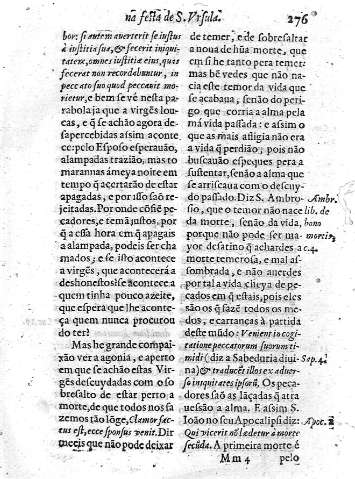 nã festa de S. Vrsula. 276
bor: si autem auerterit se iustus
à iustitia sua, & fecerit iniqui-
tatem, omnes iustitiæ eius, quas
fecerat non recordabuntur, in
peccato suo quod peccauit mo-
rietur, e bem se vé nesta pa-
rabola ja que a virgẽs lou-
cas, e q̃ se achão agora de-
sapercebidas assim aconte
ce: pelo Esposo esperauão,
alampadas trazião, mas to
marannas á meya noite em
tempo q̃ acertarão de estar
apagadas, e por isso saõ re-
jeitadas. Por onde cõfiẽ pe-
cadores, e temã justos, por
q̃ a essa hora em q̃ apagais
a alampada, podeis ser cha
mados; e se isto acontece
a virgẽs, que acontecerá a
deshonestos? se acontece a
quem tinha pouco azeite,
que espera que lhe aconte-
ça quem nunca procurou
do ter?
Mas he grande compai-
xão ver a agonia, e aperto
em que se achão estas Vir-
gẽs descuydadas com o so
bresalto de estar perto a
morte, de que todos nos fa
zemos tão lõge, Clamor fac-
tus est, ecce sponsus venit. Dir
meeis que não pode deixar
de temer, e de sobresaltar
a noua de hũa morte, que
em si he tanto pera temer:
mas bẽ vedes que não na-
cia este temor da vida que
se acabaua, senão do peri-
go que corria a alma pela
má vida passada: e assim o
que as mais afligia não era
a vida q̃ perdião, pois não
buscauão espeques pera a
sustentar, senão a alma que
se arriscaua com o descuy-
do passado. Diz S. Ambro-
sio, que o temor não nace
da morte, senão da vida,
porque não pode ser ma-
yor desatino q̃ achardes a
morte temerosa, e mal as-
sombrada, e não auerdes
por tal a vida cheya de pe-
cados em q̃ estais, pois eles
são os q̃ fazẽ todos os me-
dos, e carrancas á partida
deste mũdo: Venient in cogi-
tatione peccatorum suorum ti-
midi (diz a Sabeduria diui-
na) & traducẽt illos ex aduer-
so iniquitates ipsorũ. Os peca-
dores saõ as laçadas q̃ atra
uessão a alma. E assim S.
Ioão no seu Apocalipsi diz:
Qui vicerit nõ lædetur à morte
secũda. A primeira morte é
Ambr.
lib. de
bono
mortis,
c. 4.
Sap. 4.
Apoc. 2
Mm 4 pelo